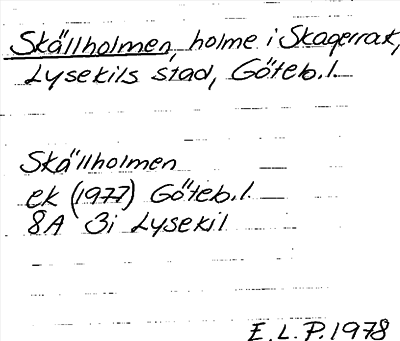 Skällholmen, holme i Skagerrak,
Lysekils stad, Göteb.l.
Skällholmen
ek (1977) Göteb.l.
8A 3i Lysekil
E.L.P.1978